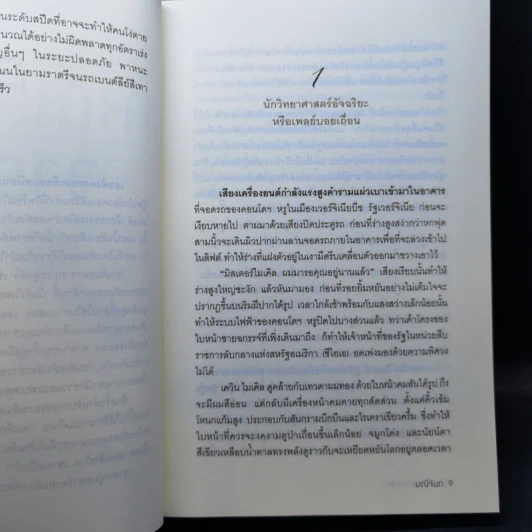 นระดับสปีดที่อาจจะทำให้คนโง่ตาย
นวณได้อย่างไม่ผิดพลาดทุกอัตราเร่ง
ญอื่นๆ ในระยะปลอดภัย พาหนะ
นนในยามราตรีจนรถเบนต์ลีย์สีเทา
ร็ว
1
นักวิทยาศาสตร์อัจฉริยะ
หรือเพลย์บอยเถื่อน
เสียงเครื่องยนต์กำลังแรงสูงคำรามแผ่วเบาเข้ามาในอาคาร
ที่จอดรถของคอนโดฯ หรูในเมืองเวอร์จิเนียบีช รัฐเวอร์จิเนีย ก่อนจะ
เงียบหายไป ตามมาด้วยเสียงปิดประตูรถ ก่อนที่ร่างสูงสง่ากว่าหกฟุต
สามนิ้วจะเดินผิวปากผ่านลานจอดรถภายในอาคารเพื่อที่จะตรงเข้าไป
ในลิฟต์ ทำให้ร่างที่แฝงตัวอยู่ในเงามืดรีบเคลื่อนตัวออกมาขวางเอาไว้
“มิสเตอร์ไมเคิล ผมมารอคุณอยู่นานแล้ว” เสียงเรียบนั้นทำให้
ร่างสูงใหญ่ชะงัก แล้วหันมามอง ก่อนที่รอยยิ้มหยันอย่างไม่เต็มใจจะ
ปรากฏขึ้นบนริมฝีปากได้รูป เวลาใกล้เช้าพร้อมกับแสงสว่างเล็กน้อยนั้น
ทำให้ระบบไฟฟ้าของคอนโดฯ หรูปิดไปบางส่วนแล้ว ทว่าเค้าโครงของ
ใบหน้าชายฉกรรจ์ที่เพิ่งเดินมาถึง ก็ทำให้เจ้าหน้าที่ของรัฐในหน่วยสืบ
ราชการลับกลางแห่งสหรัฐอเมริกา (ซีไอเอ) อดเพ่งมองด้วยความพิศวง
ไม่ได้
เควิน ไมเคิล ดูคล้ายกับเทวดาผมทอง ด้วยใบหน้าคมสันได้รูป ถึง
จะมีผมสีอ่อน แต่กลับมีเครื่องหน้าคมคายทุกสัดส่วน ตั้งแต่คิ้วเข้ม
โหนกแก้มสูง ประกอบกับสันกรามบึกบึนและไรเคราเขียวครึ้ม ซึ่งทำให้
ใบหน้าที่ควรจะงดงามดูป่าเถื่อนขึ้นเล็กน้อย จมูกโด่ง และนัยน์ตา
สีเขียวเหลือบน้ำตาลทรงพลังดูราวกับจะเหยียดหยันโลกอยู่ตลอดเวลา
มณีจันท์ 9